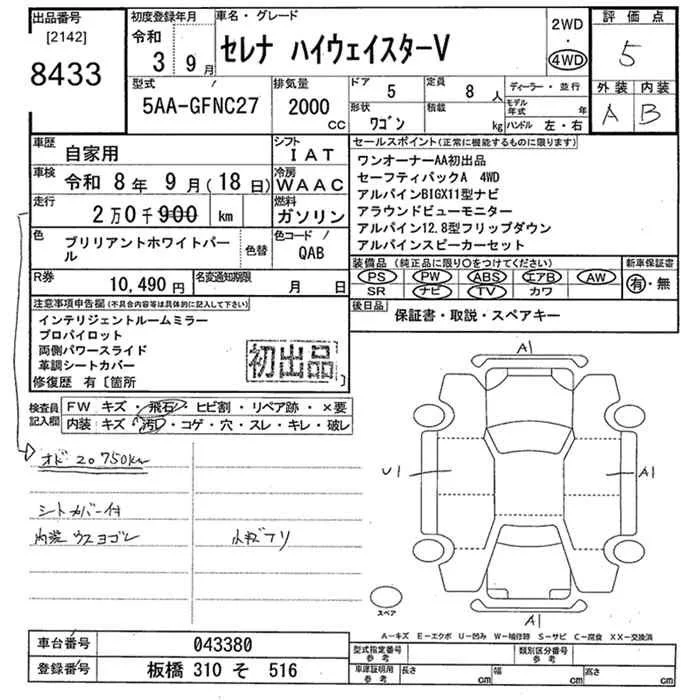 出品番号
[2142]
8433
初度登録年月
令和
3 9月
車名・グレード
セレナ ハイウェイスターV
2WD
・
4WD
評価点
5
型式
5AA-GFNC27
排気量
2000
cc
ドア 5
定員 8 人
形状 ワゴン
積載 kg
ディーラー・並行
モデル年式 年
ハンドル 左・右
外装 内装
A B
車歴 自家用
シフト IAT
車検 令和 8年 9月(18日)
冷房 WAAC
走行 2万0千900 km
燃料 ガソリン
色 ブリリアントホワイトパール
色替
色コード / QAB
R券 10,490円
名変通知期限 月 日
セールスポイント(正常に機能するものに限ります)
ワンオーナーAA初出品
セーフティパックA 4WD
アルパインBIGX11型ナビ
アラウンドビューモニター
アルパイン12.8型フリップダウン
アルパインスピーカーセット
装備品(純正品に限り○をつけてください)
PS PW ABS エアB AW
SR ナビ TV カワ
新車保証書
有・無
後日品
保証書・取説・スペアキー
注意事項申告欄(不具合内容等は具体的に記入して下さい)
インテリジェントルームミラー
プロパイロット
両側パワースライド
革調シートカバー
修復歴 有〔箇所
初出品
検査員記入欄
FW キズ・飛石・ヒビ割・リペア跡・×要
内装 キズ・汚れ・コゲ・穴・スレ・キレ・破レ
オド 20750km
シートカバー付
内装ウスヨゴレ
小キズアリ
A1
U1
A1
A1
スペア
A-キズ E-エクボ U-凹み W-補修跡 S-サビ C-腐食 XX-交換済
車台番号 043380
登録番号 板橋 310 そ 516
型式指定番号
参考
類別区分番号
参考
車庫証明用
参考
長さ cm
幅 cm
高さ cm